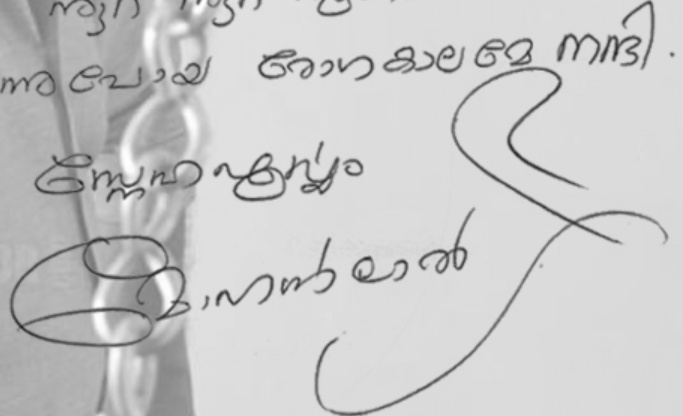 പോയ രോഗകാലമേ നന്ദി.
സ്നേഹപൂർവ്വം
മോഹൻലാൽ